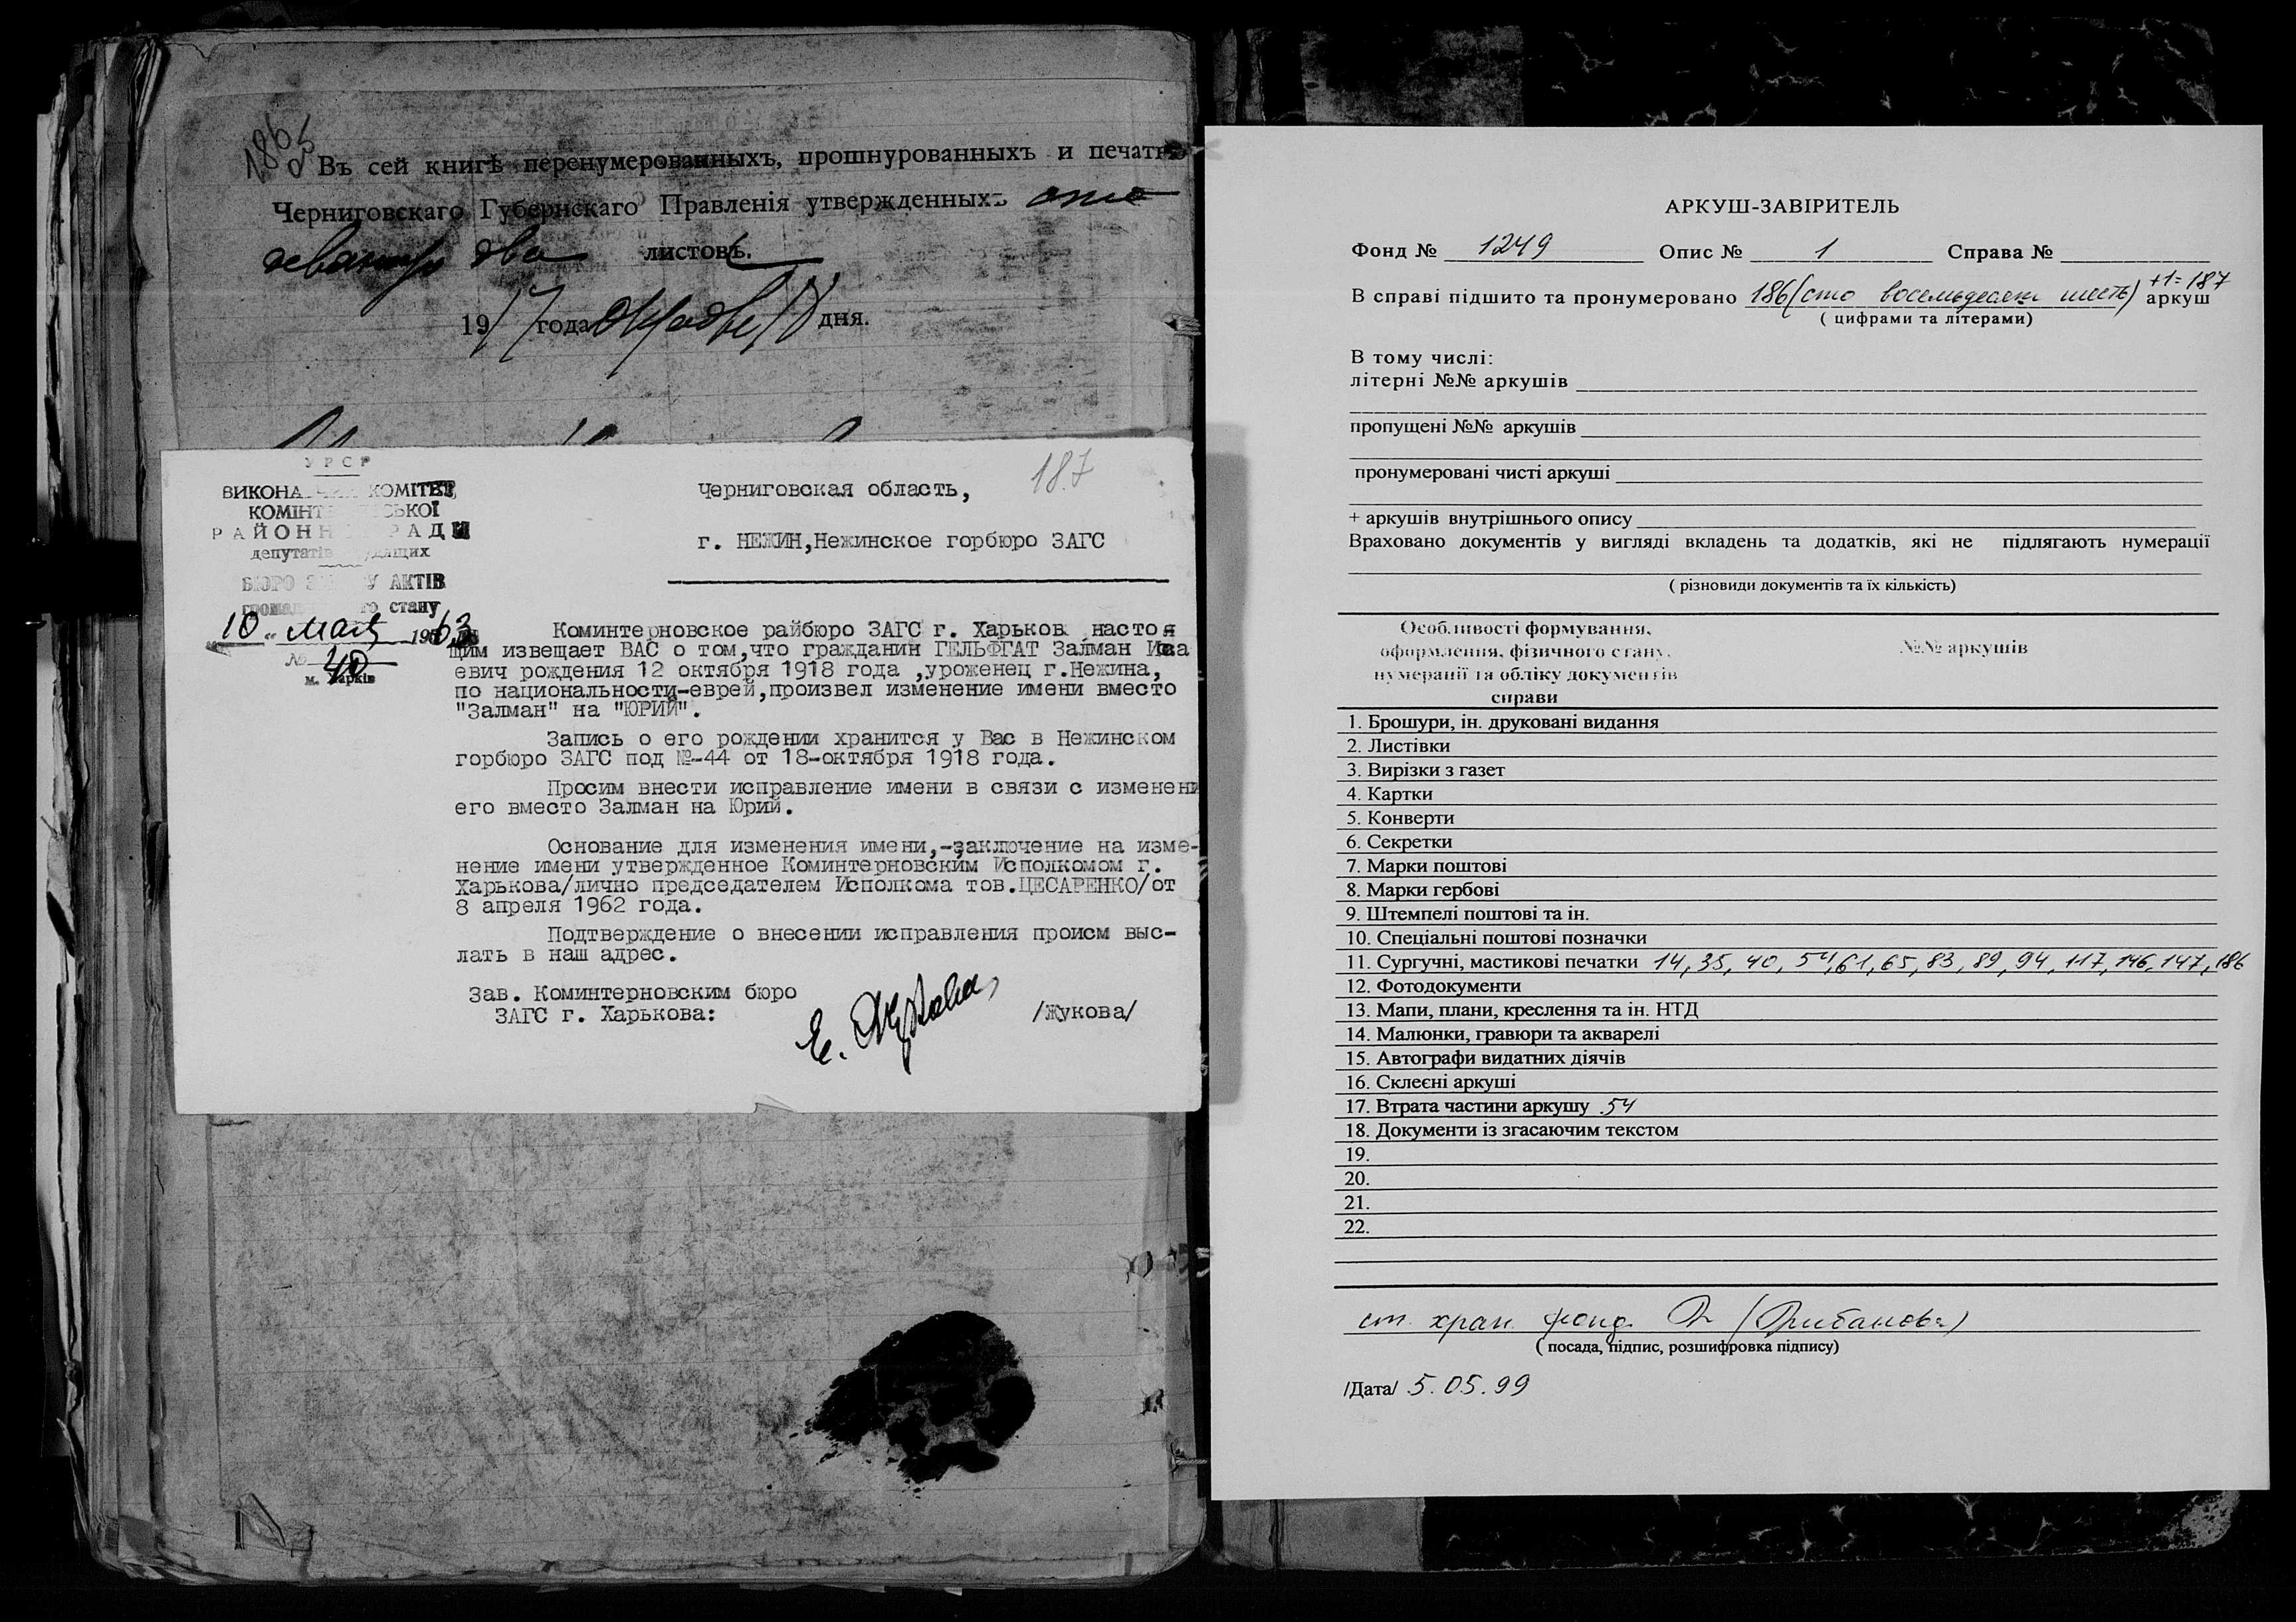 186 об
Въ сей книгѣ перенумерованныхъ, прошнурованныхъ и печатью
Черниговскаго Губернскаго Правленія утвержденныхъ сто
девяносто два листовъ.
1917 года октября 18 дня.
187
УРСР
ВИКОНА КОМІТЕТ
КОМІНТ СЬКОЇ
РАЙОНН РАДИ
депутатів дящих
БЮРО З У АКТІВ
громад го стану
"10" мая 1963
№ 40
м. Харків
Черниговская область,
г. НЕЖИН,Нежинское горбюро ЗАГС
Коминтерновское райбюро ЗАГС г. Харьков настоя
щим извещает ВАС о том,что гражданин ГЕЛЬФГАТ Залман Иса
евич рождения 12 октября 1918 года ,уроженец г.Нежина,
по национальности-еврей,произвел изменение имени вместо
"Залман" на "ЮРИЙ".
Запись о его рождении хранится у Вас в Нежинском
горбюро ЗАГС под №-44 от 18-октября 1918 года.
Просим внести исправление имени в связи с изменени
его вместо Залман на Юрий.
Основание для изменения имени,-заключение на изме-
нение имени утвержденное Коминтерновским Исполкомом г.
Харькова/лично председателем Исполкома тов.ЦЕСАРЕНКО/от
8 апреля 1962 года.
Подтверждение о внесении исправления происм выс-
лать в наш адрес.
Зав. Коминтерновским бюро
ЗАГС г. Харькова: Е. Жукова /Жукова/
АРКУШ-ЗАВІРИТЕЛЬ
Фонд № 1249 Опис № 1 Справа №
В справі підшито та пронумеровано 186 (сто восемьдесят шесть) +1=187 аркуш
( цифрами та літерами)
В тому числі:
літерні №№ аркушів
пропущені №№ аркушів
пронумеровані чисті аркуші
+ аркушів внутрішнього опису
Враховано документів у вигляді вкладень та додатків, які не підлягають нумерації
( різновиди документів та їх кількість)
Особливості формування,
оформлення, фізичного стану, №№ аркушів
нумерації та обліку документів
справи
1. Брошури, ін. друковані видання
2. Листівки
3. Вирізки з газет
4. Картки
5. Конверти
6. Секретки
7. Марки поштові
8. Марки гербові
9. Штемпелі поштові та ін.
10. Спеціальні поштові позначки
11. Сургучні, мастикові печатки 14, 35, 40, 54, 61, 65, 83, 89, 94, 117, 146, 147, 186
12. Фотодокументи
13. Мапи, плани, креслення та ін. НТД
14. Малюнки, гравюри та акварелі
15. Автографи видатних діячів
16. Склеєні аркуші
17. Втрата частини аркушу 54
18. Документи із згасаючим текстом
19.
20.
21.
22.
ст. хран. фонд. (Грибанова)
( посада, підпис, розшифровка підпису)
/Дата/ 5.05.99